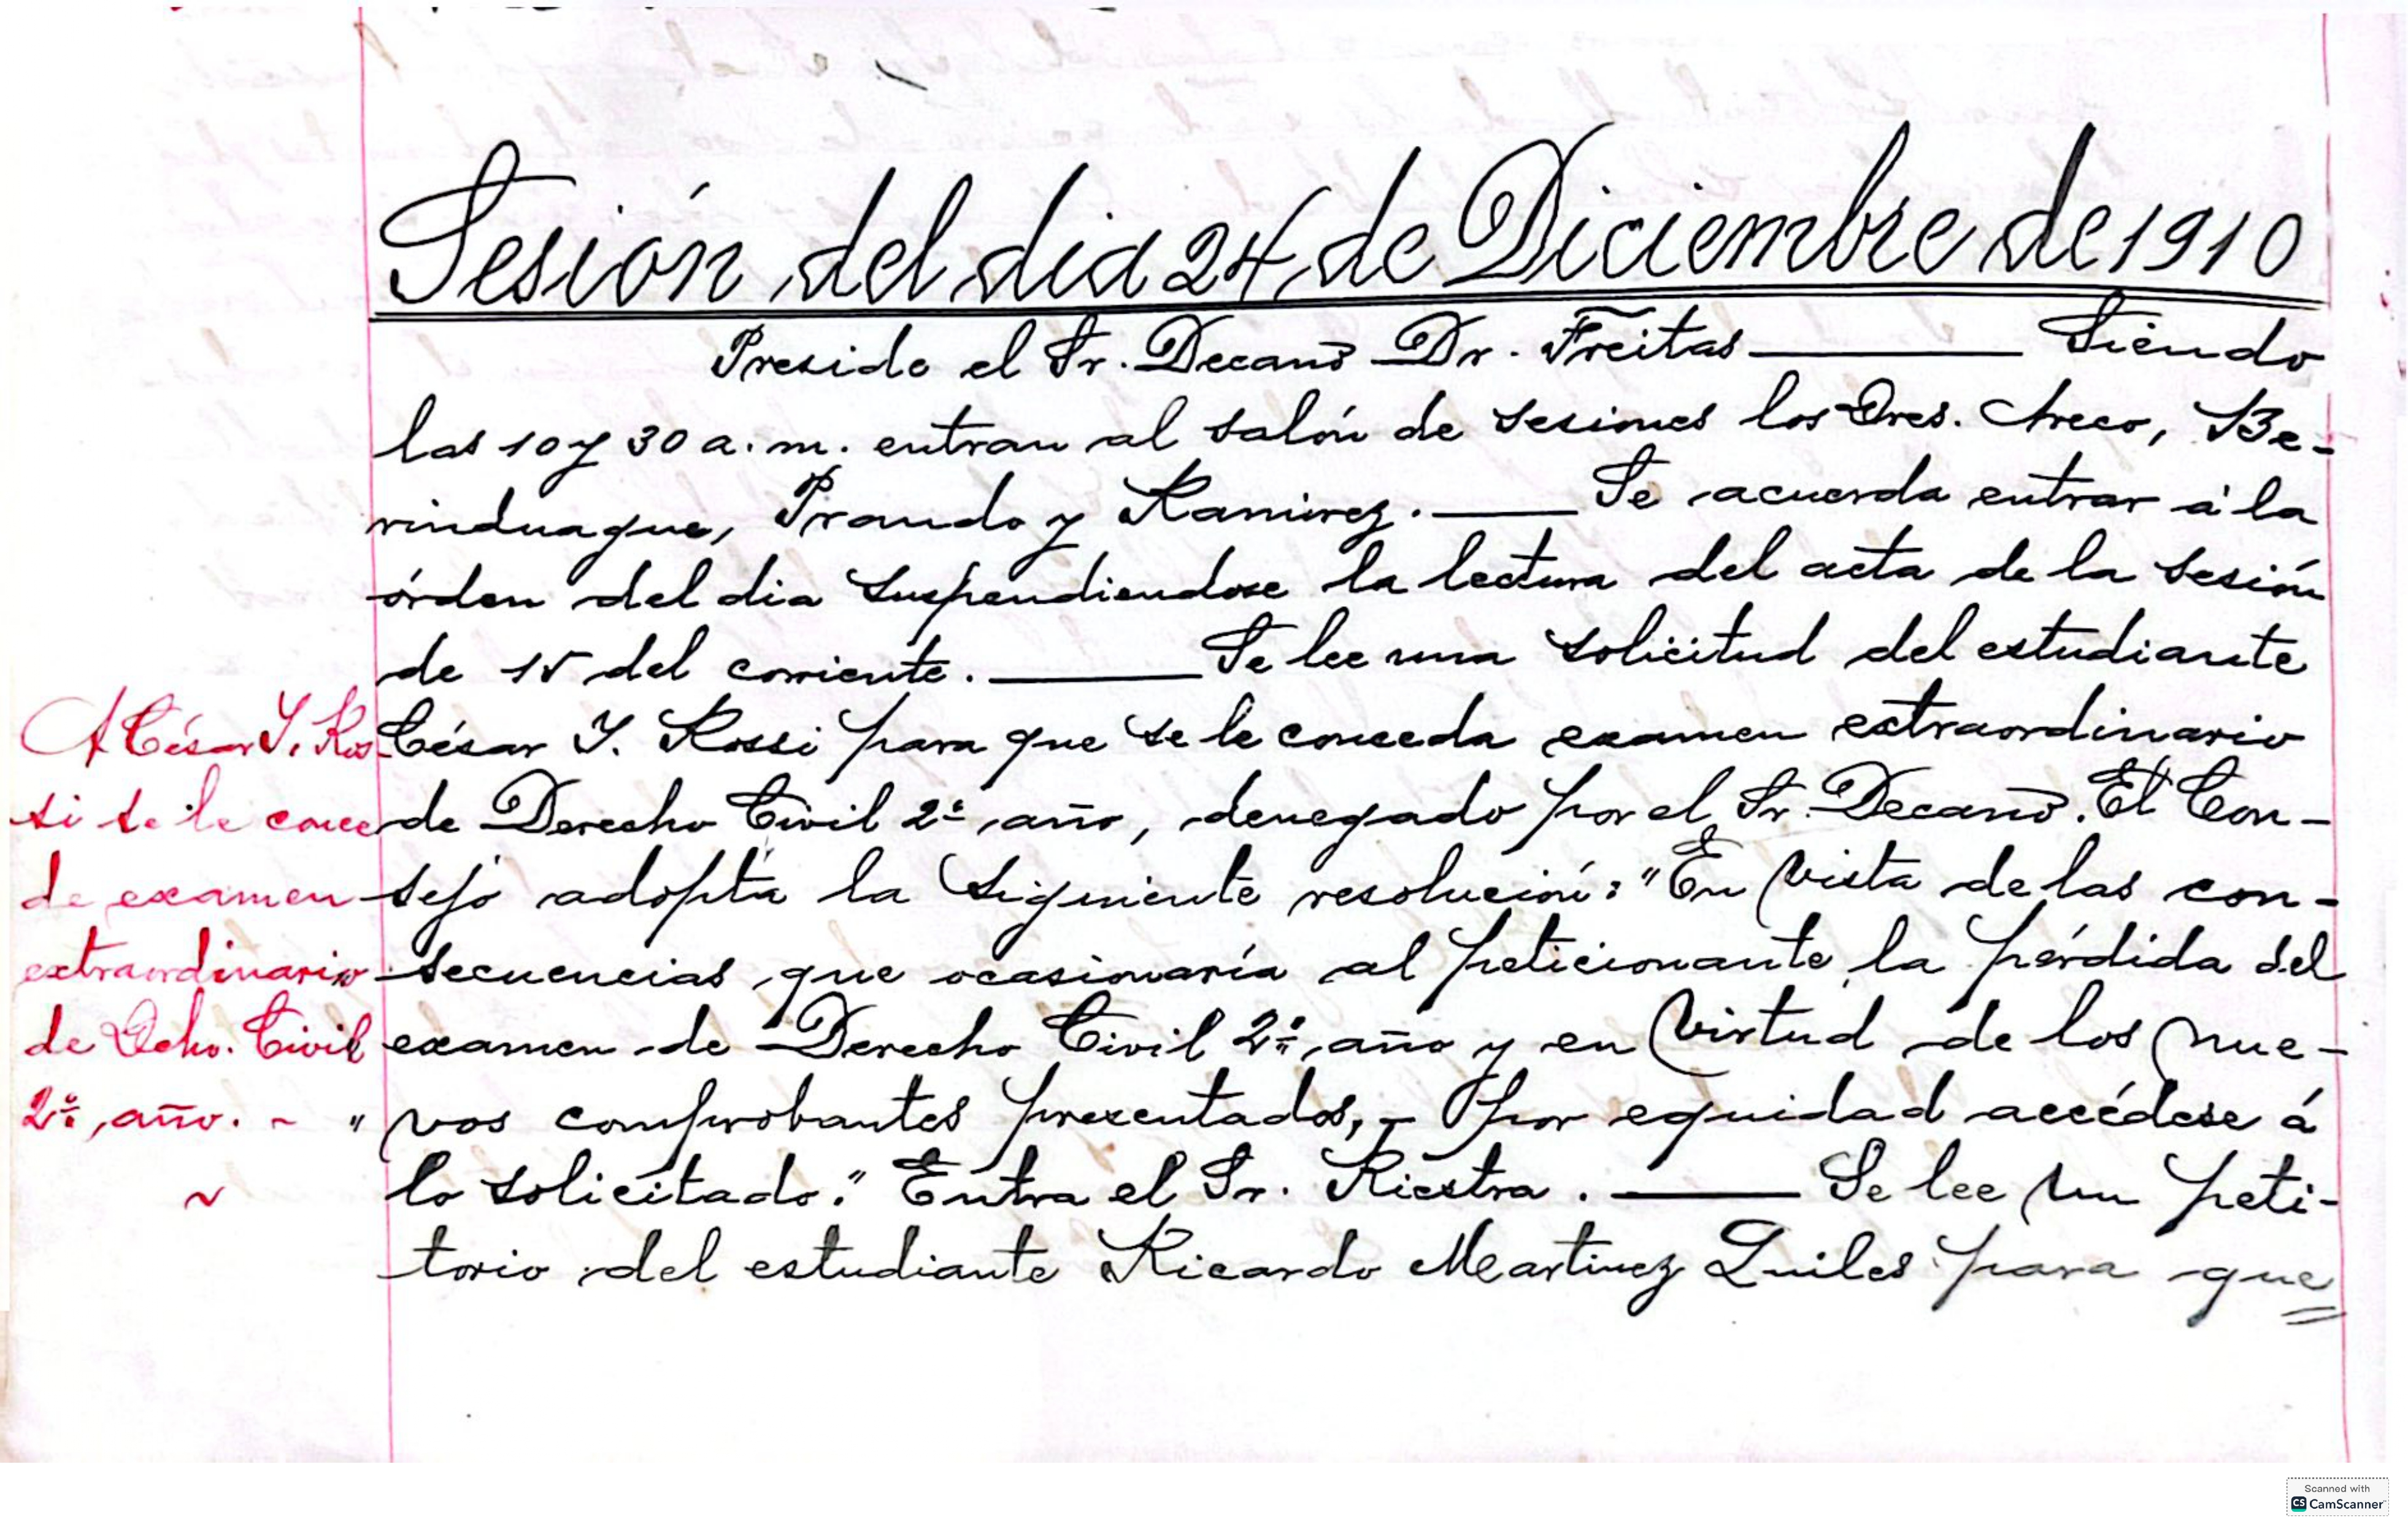 Sesión del dia 24 de Diciembre de 1910
Preside el Sr. Decano Dr. Freitas ——— Siendo
las 10 y 30 a.m. entran al salón de sesiones los Dres. Areco, Be-
rinduague, Prando y Ramirez. ——— Se acuerda entrar á la
órden del dia suspendiendose la lectura del acta de la sesión
de 15 del corriente. ——— Se lee una solicitud del estudiante
César Y. Rossi para que se le conceda examen extraordinario
de Derecho Civil 2º año, denegado por el Sr. Decano. El Con-
sejo adopta la siguiente resolución: "En vista de las con-
secuencias que ocasionaría al peticionante la pérdida del
examen de Derecho Civil 2º año y en virtud de los nue-
" vos comprobantes presentados, - por equidad accédese á
lo solicitado." Entra el Sr. Riestra. ——— Se lee un peti-
torio del estudiante Ricardo Martinez Quiles para que
A César Y. Ros-
si se le conce
de examen
extraordinario
de Dcho. Civil
2º año. -
Scanned with
CS CamScanner